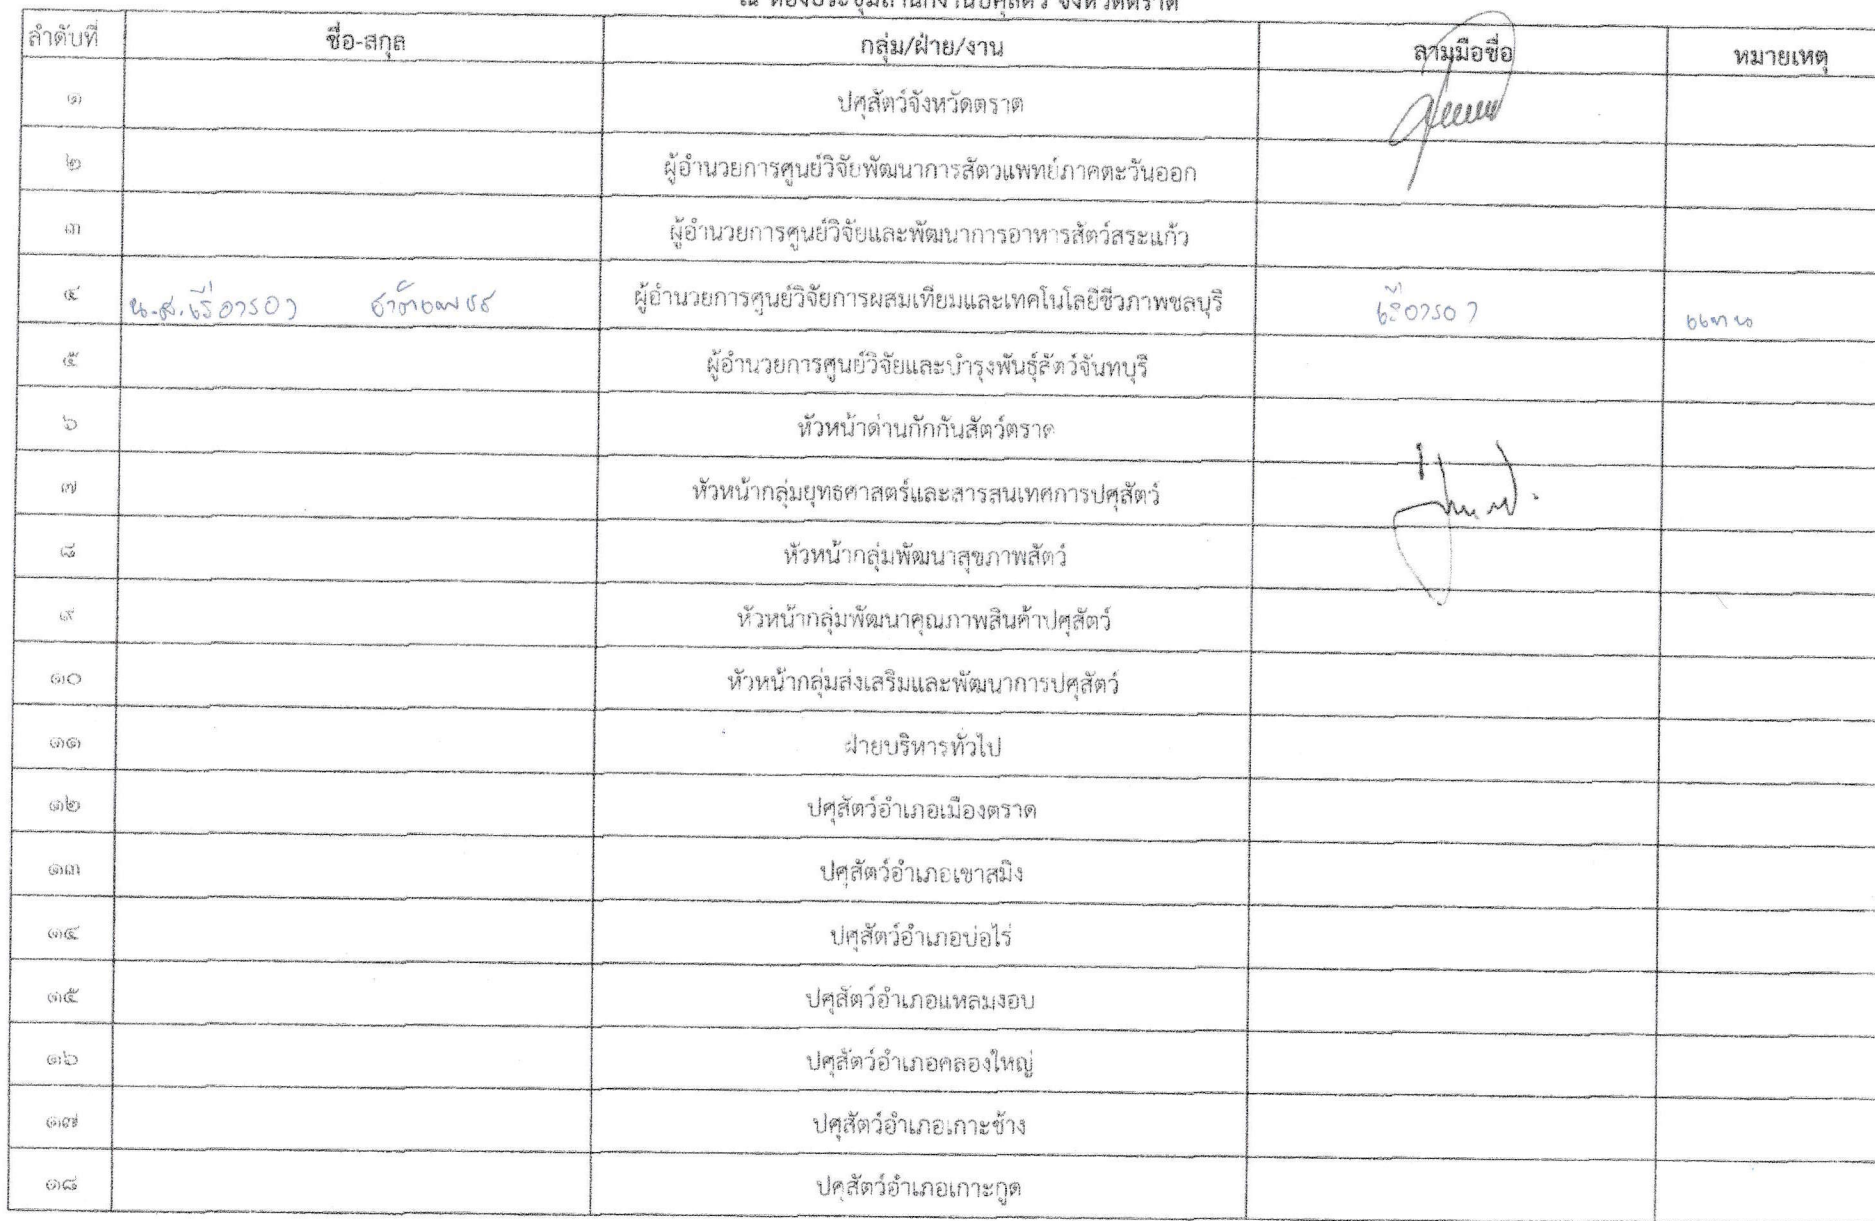 ณ ห้องประชุมสำนักงานปศุสัตว์ จังหวัดตราด
ลำดับที่ ชื่อ-สกุล กลุ่ม/ฝ่าย/งาน ลายมือชื่อ หมายเหตุ
๑ ปศุสัตว์จังหวัดตราด
๒ ผู้อำนวยการศูนย์วิจัยพัฒนาการสัตวแพทย์ภาคตะวันออก
๓ ผู้อำนวยการศูนย์วิจัยและพัฒนาการอาหารสัตว์สระแก้ว
๔ น.ส. ผู้อำนวยการศูนย์วิจัยการผสมเทียมและเทคโนโลยีชีวภาพชลบุรี แทน
๕ ผู้อำนวยการศูนย์วิจัยและบำรุงพันธุ์สัตว์จันทบุรี
๖ หัวหน้าด่านกักกันสัตว์ตราด
๗ หัวหน้ากลุ่มยุทธศาสตร์และสารสนเทศการปศุสัตว์
๘ หัวหน้ากลุ่มพัฒนาสุขภาพสัตว์
๙ หัวหน้ากลุ่มพัฒนาคุณภาพสินค้าปศุสัตว์
๑๐ หัวหน้ากลุ่มส่งเสริมและพัฒนาการปศุสัตว์
๑๑ ฝ่ายบริหารทั่วไป
๑๒ ปศุสัตว์อำเภอเมืองตราด
๑๓ ปศุสัตว์อำเภอเขาสมิง
๑๔ ปศุสัตว์อำเภอบ่อไร่
๑๕ ปศุสัตว์อำเภอแหลมงอบ
๑๖ ปศุสัตว์อำเภอคลองใหญ่
๑๗ ปศุสัตว์อำเภอเกาะช้าง
๑๘ ปศุสัตว์อำเภอเกาะกูด